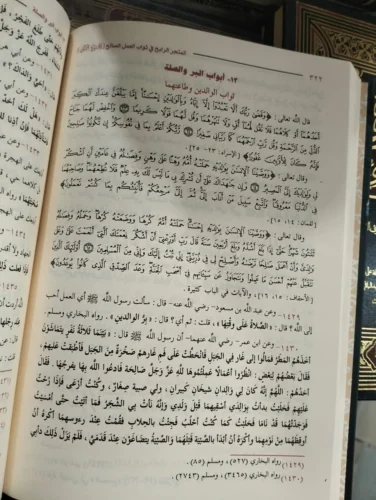 ٣٩٦
المتجر الرابح في ثواب العمل الصالح
١٣- أبواب البر والصلة
ثواب بر الوالدين وطاعتهما
قال الله تعالى : ﴿ وَقَضَىٰ رَبُّكَ أَلَّا تَعْبُدُوا إِلَّا إِيَّاهُ وَبِالْوَالِدَيْنِ إِحْسَانًا إِمَّا يَبْلُغَنَّ عِندَكَ الْكِبَرَ
أَحَدُهُمَا أَوْ كِلَاهُمَا فَلَا تَقُل لَّهُمَا أُفٍّ وَلَا تَنْهَرْهُمَا وَقُل لَّهُمَا قَوْلًا كَرِيمًا ۝ وَاخْفِضْ لَهُمَا جَنَاحَ
الذُّلِّ مِنَ الرَّحْمَةِ وَقُل رَّبِّ ارْحَمْهُمَا كَمَا رَبَّيَانِي صَغِيرًا ۝ رَّبُّكُمْ أَعْلَمُ بِمَا فِي نُفُوسِكُمْ إِن تَكُونُوا صَالِحِينَ
فَإِنَّهُ كَانَ لِلْأَوَّابِينَ غَفُورًا ﴾ [الإسراء: ٢٣ - ٢٥].
وقال تعالى : ﴿ وَوَصَّيْنَا الْإِنسَانَ بِوَالِدَيْهِ حَمَلَتْهُ أُمُّهُ وَهْنًا عَلَىٰ وَهْنٍ وَفِصَالُهُ فِي عَامَيْنِ أَنِ اشْكُرْ
لِي وَلِوَالِدَيْكَ إِلَيَّ الْمَصِيرُ ۝ وَإِن جَاهَدَاكَ عَلَىٰ أَن تُشْرِكَ بِي مَا لَيْسَ لَكَ بِهِ عِلْمٌ فَلَا تُطِعْهُمَا وَصَاحِبْهُمَا
فِي الدُّنْيَا مَعْرُوفًا وَاتَّبِعْ سَبِيلَ مَنْ أَنَابَ إِلَيَّ ثُمَّ إِلَيَّ مَرْجِعُكُمْ فَأُنَبِّئُكُم بِمَا كُنتُمْ تَعْمَلُونَ ﴾
[لقمان: ١٤، ١٥].
وقال تعالى : ﴿ وَوَصَّيْنَا الْإِنسَانَ بِوَالِدَيْهِ إِحْسَانًا حَمَلَتْهُ أُمُّهُ كُرْهًا وَوَضَعَتْهُ كُرْهًا وَحَمْلُهُ وَفِصَالُهُ
ثَلَاثُونَ شَهْرًا حَتَّىٰ إِذَا بَلَغَ أَشُدَّهُ وَبَلَغَ أَرْبَعِينَ سَنَةً قَالَ رَبِّ أَوْزِعْنِي أَنْ أَشْكُرَ نِعْمَتَكَ الَّتِي أَنْعَمْتَ عَلَيَّ وَعَلَىٰ
وَالِدَيَّ وَأَنْ أَعْمَلَ صَالِحًا تَرْضَاهُ وَأَصْلِحْ لِي فِي ذُرِّيَّتِي إِنِّي تُبْتُ إِلَيْكَ وَإِنِّي مِنَ الْمُسْلِمِينَ ۝ أُولَٰئِكَ الَّذِينَ
نَتَقَبَّلُ عَنْهُمْ أَحْسَنَ مَا عَمِلُوا وَنَتَجَاوَزُ عَن سَيِّئَاتِهِمْ فِي أَصْحَابِ الْجَنَّةِ وَعْدَ الصِّدْقِ الَّذِي كَانُوا يُوعَدُونَ ﴾
[الأحقاف: ١٥، ١٦]، والآيات في الباب كثيرة .
١٤٢٩ - وعن عبد الله بن مسعود - رضي الله عنه - قال : سألت رسول الله ﷺ أي العمل أحب
إلى الله؟ قال : « الصَّلَاةُ عَلَى وَقْتِهَا » . قلت : ثم أي؟ قال : « بِرُّ الوالدين » . رواه البخاري ومسلم .
١٤٣٠ - وعن ابن عمر - رضي الله عنهما - أن رسول الله ﷺ قال : « بَيْنَمَا ثَلَاثَةُ نَفَرٍ يَتَمَاشَوْنَ
أَخَذَهُمُ المَطَرُ فَمَالُوا إلَى غَارٍ في الجَبَلِ فَانْحَطَّتْ عَلَى فَمِ غَارِهِمْ صَخْرَةٌ مِنَ الجَبَلِ فَأَطْبَقَتْ عَلَيْهِمْ ،
فَقَالَ بَعْضُهُمْ لِبَعْضٍ : انْظُرُوا أَعْمَالاً عَمِلْتُمُوهَا للهِ عَزَّ وَجَلَّ صَالِحَةً فَادْعُوا اللهَ بِهَا لَعَلَّهُ يَفْرُجُهَا . فَقَالَ
أَحَدُهُمْ : اللَّهُمَّ إِنَّهُ كَانَ لِي وَالِدَانِ شَيْخَانِ كَبِيرَانِ ، وَلِي صِبْيَةٌ صِغَارٌ ، وَكُنْتُ أَرْعَى فَإِذَا رُحْتُ
عَلَيْهِمْ فَحَلَبْتُ بَدَأْتُ بِوَالِدَيَّ أَسْقِيهِمَا قَبْلَ وَلَدِي وَإِنَّهُ نَأَى بِي الشَّجَرُ فَمَا أَتَيْتُ حَتَّى أَمْسَيْتُ
فَوَجَدْتُهُمَا قَدْ نَامَا فَحَلَبْتُ كَمَا كُنْتُ أَحْلُبُ فَجِئْتُ بِالحِلَابِ فَقُمْتُ عِنْدَ رءوسهما أَكْرَهُ أَنْ
أُوقِظَهُمَا مِنْ نَوْمِهِمَا وَأَكْرَهُ أَنْ أَبْدَأَ بِالصِّبْيَةِ قَبْلَهُمَا وَالصِّبْيَةُ يَتَضَاغَوْنَ عِنْدَ قَدَمَيَّ ، فَلَمْ يَزَلْ ذَلِكَ دَأْبِي
(١٤٢٩) رواه البخاري (٥٢٧) ، ومسلم (٨٥).
(١٤٣٠) رواه البخاري (٣٤٦٥) ، ومسلم (٢٧٤٣).